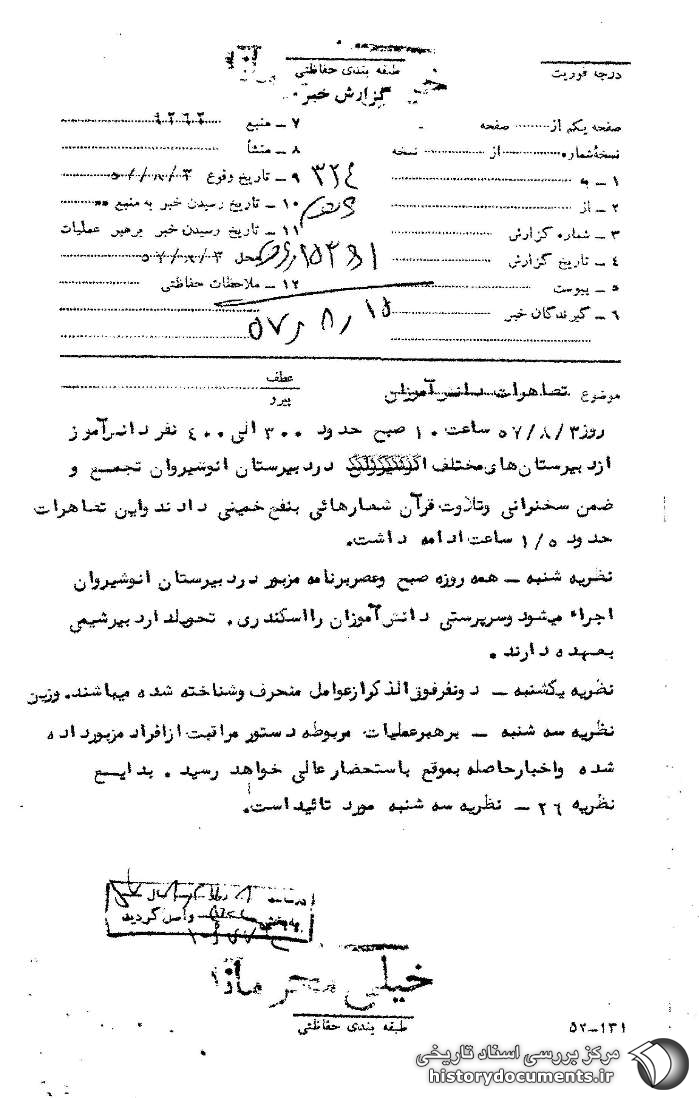 طبقه بندی حفاظتی
درجه فوریت
گزارش خبر
صفحه یکم از ........ صفحه
نسخه شماره ........ از ........ نسخه
۱ – به
۲ – از
۳ – شماره گزارش
۴ – تاریخ گزارش
۵ – پیوست
۶ – گیرندگان خبر
۷ – منبع ۹۲۶۲
۸ – منشأ
۹ – تاریخ وقوع ۵۷/۸/۳
۱۰ – تاریخ رسیدن خبر به منبع
۱۱ – تاریخ رسیدن خبر برهبر عملیات
محل ۵۷/۸/۳
۱۲ – ملاحظات حفاظتی
۳۲۴
۵۷٫۸٫۱۵
موضوع تظاهرات دانش آموزان
عطف
پیرو
روز ۵۷/۸/۳ ساعت ۱۰ صبح حدود ۳۰۰ الی ۴۰۰ نفر دانش آموز
از دبیرستان های مختلف در دبیرستان انوشیروان تجمع و
ضمن سخنرانی وتلاوت قرآن شعارهائی بنفع خمینی دادند واین تظاهرات
حدود ۱/۵ ساعت ادامه داشت.
نظریه شنبه – همه روزه صبح وعصر برنامه مزبور در دبیرستان انوشیروان
اجراء میشود وسرپرستی دانش آموزان را اسکندری. تحویلدار دبیرشیمی
بعهده دارند.
نظریه یکشنبه – دونفر فوق الذکر از عوامل منحرف وشناخته شده میباشند. وزین
نظریه سه شنبه – برهبرعملیات مربوطه دستور مراقبت از افراد مزبور داده
شده واخبار حاصله بموقع باستحضار عالی خواهد رسید. بدایع
نظریه ۲۶ – نظریه سه شنبه مورد تائید است.
واصل گردید
خیلی محرمانه
طبقه بندی حفاظتی
۵۲–۱۳۱
مرکز بررسی اسناد تاریخی
historydocuments.ir